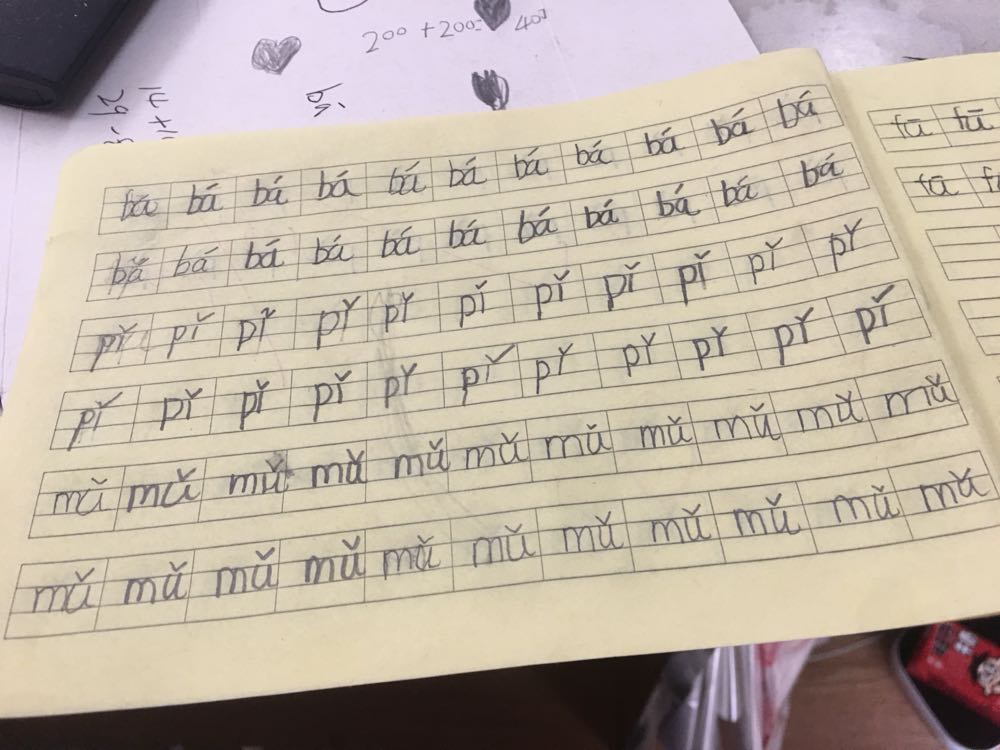 200 + 200= 401
bá bá bá bá bá bá bá bá bá bá bá
bǎ bá bá bá bá bá bá bá bá bá bá
pǐ pǐ pǐ pǐ pǐ pǐ pǐ pǐ pǐ pǐ pǐ
pǐ pǐ pǐ pǐ pǐ pǐ pǐ pǐ pǐ pǐ pǐ
mǔ mǔ mǔ mǔ mǔ mǔ mǔ mǔ mǔ mǔ mǔ
mǔ mǔ mǔ mǔ mǔ mǔ mǔ mǔ mǔ mǔ mǔ
fā fā
fā